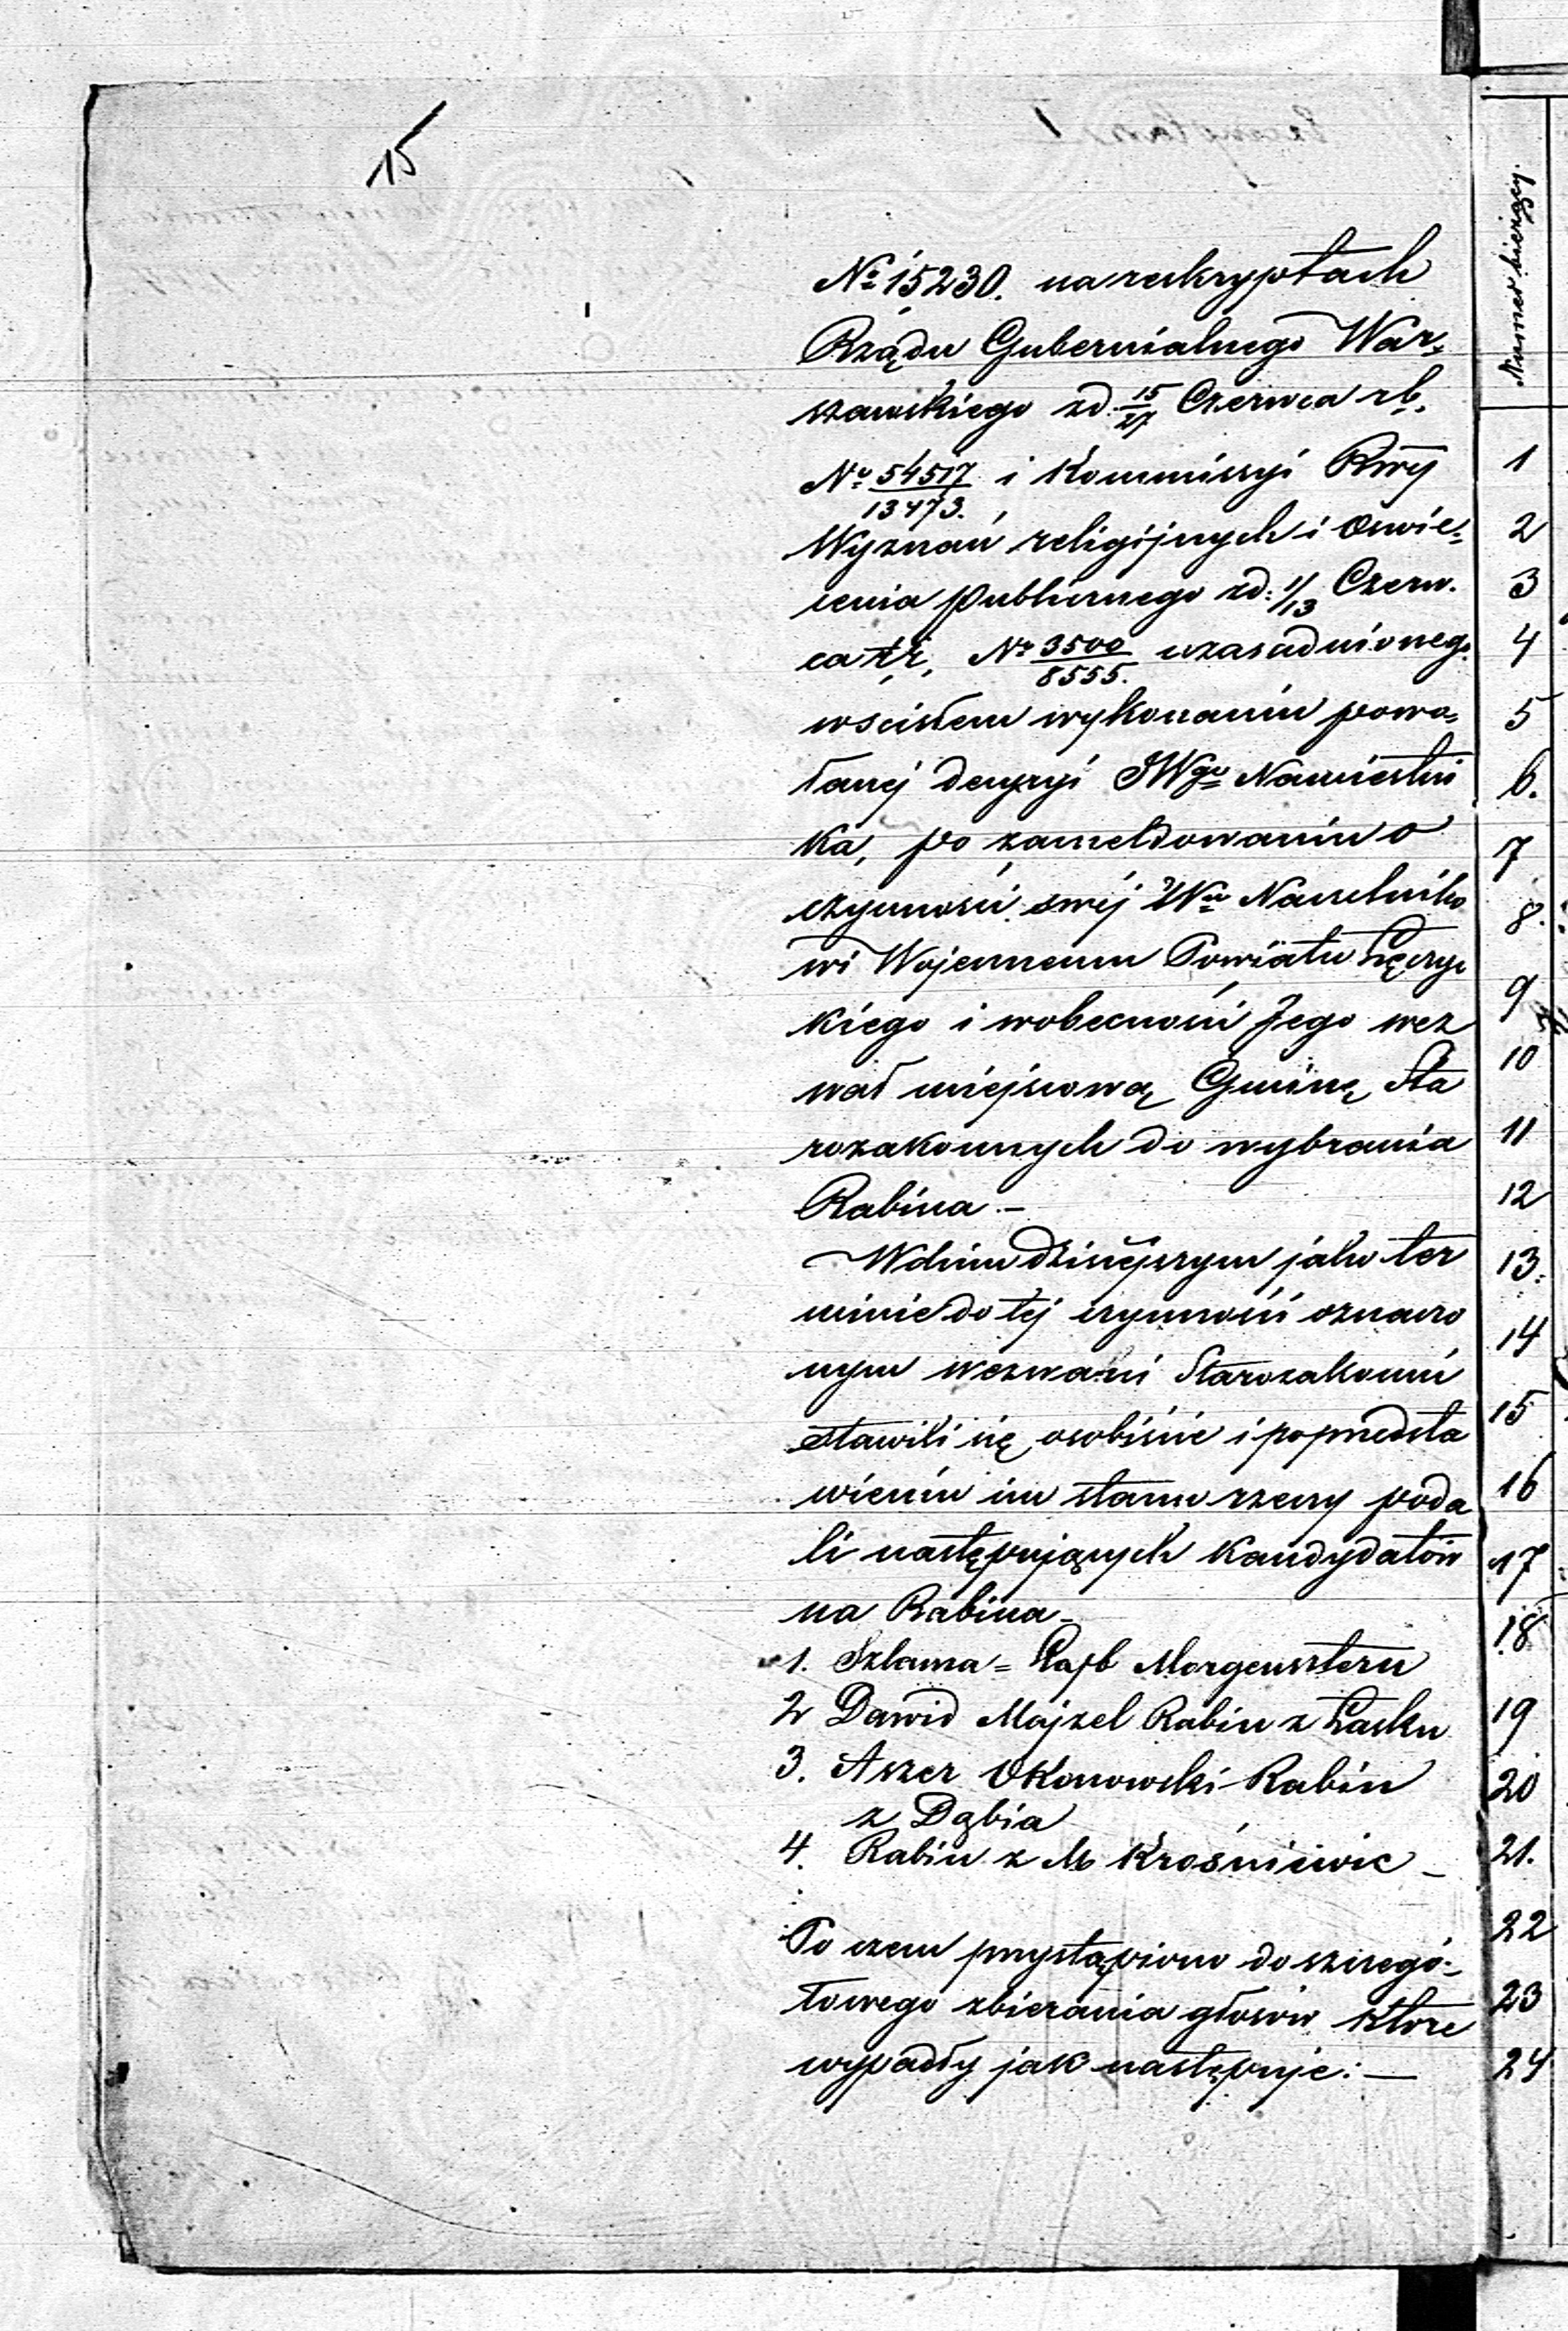 15
№ 15230. na reskryptach
Rządu Gubernialnego War-
szawskiego zd. 15/27 Czerwca rb.
№ 54517/13473. i Kommissyi Rwéj
Wyznań religijnych i Oswie-
cenia publicznego zd: 1/13 Czerw.
ca t.r. Nr 3500/8555. uzasadnionego
w scisłem wykonaniu powo-
łanej decyzyi JWgo Namiestni
ka, po zameldowaniu o
czynności swéj Wu Naczelniko
wi Wojennemu Powiatu Łęczyc
kiego i w obecności Jego wez
wał miejscową Gminę Sta
rozakonnych do wybrania
Rabina. –
W dniu dzisiéjszym jako ter
minie do téj czynności oznaczo
nym wezwani Starozakonni
stawili się osobiście i po przedsta
wieniu im stanu rzeczy poda
li następujących Kandydatów
na Rabina –
1. Szlama = Lajb Morgensztern
2 Dawid Majzel Rabin z Łasku
3. Aszer Okonowski Rabin
z Dąbia
4. Rabin z M. Krośniewic –
Po czem przystąpiono do szczegó-
łowego zbierania głosów które
wypadły jak następuje: —
Numer bieżący.
1
2
3
4
5
6.
7
8.
9
10
11
12
13.
14
15
16
17
18
19
20
21.
22
23
24